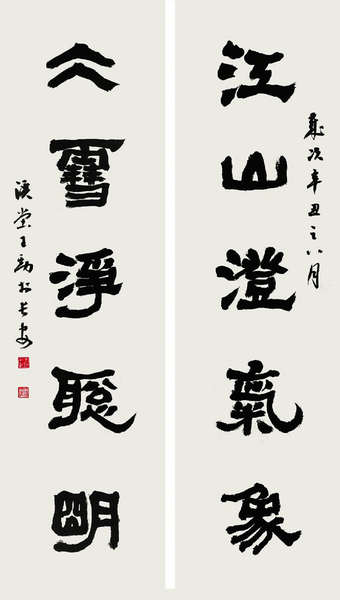 歲次辛丑之八月
江山澄氣象
仌雪淨聰明
堂王於長安